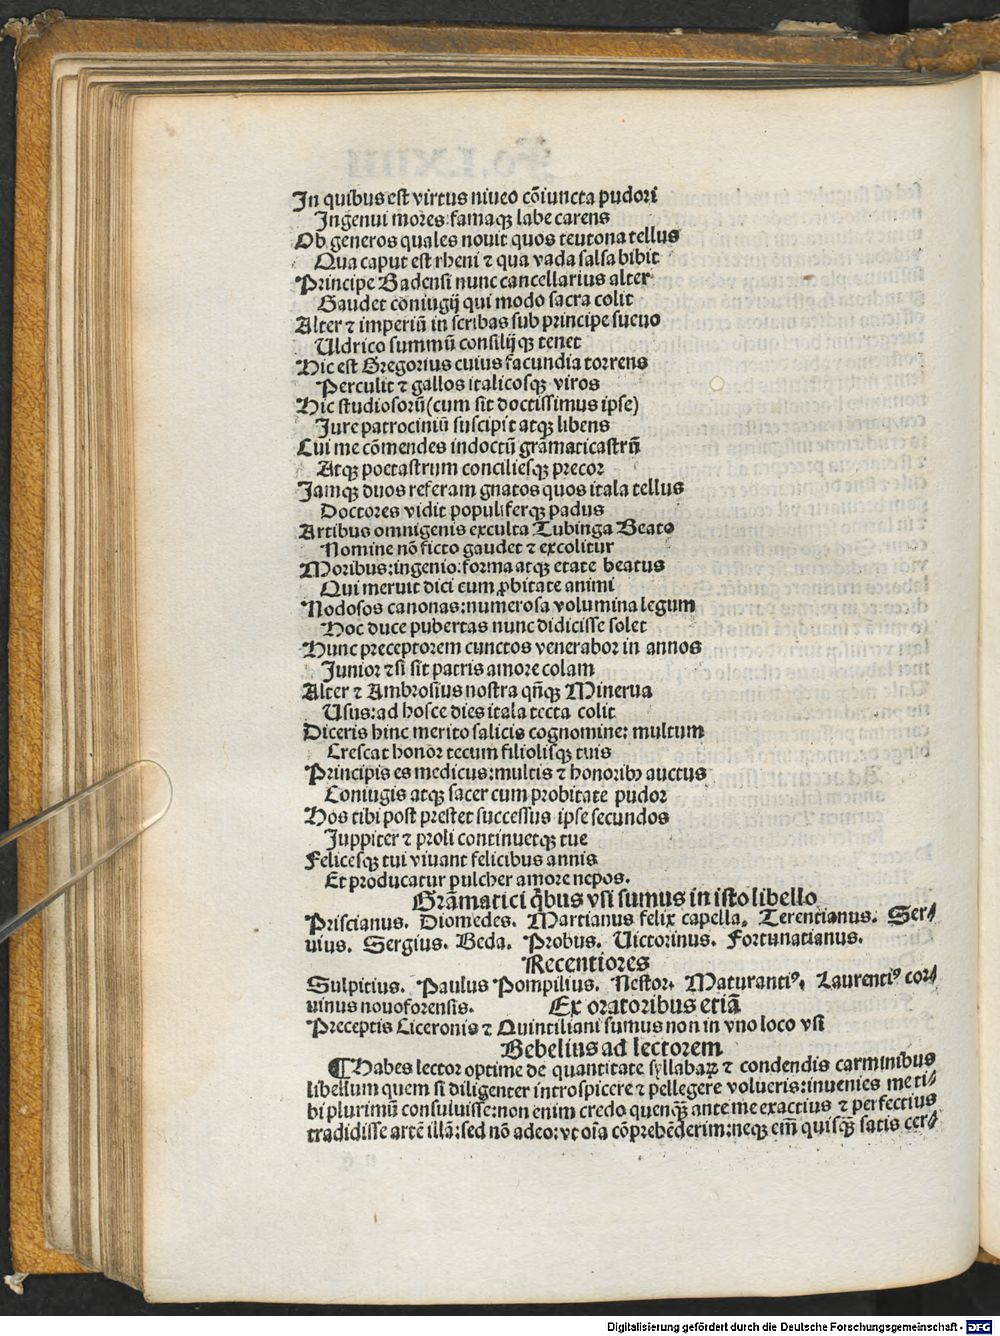 In quibus est virtus niueo cõiuncta pudori
Ingenui mores: famaqꝫ labe carens
Ob generos quales nouit quos teutona tellus
Qua caput est rheni ⁊ qua vada salsa bibit
Principe Badensi nunc cancellarius alter
Gaudet coniugij qui modo sacra colit
Alter ⁊ imperiũ in scribas sub principe sueuo
Uldrico summũ consilijqꝫ tenet
Hic est Gregorius cuius facundia torrens
Perculit ⁊ gallos italicosqꝫ viros
Hic studiosorũ (cum sit doctissimus ipse)
Iure patrociniũ suscipit atqꝫ libens
Cui me cõmendes indoctũ grãmaticastrũ
Atqꝫ poetastrum conciliesqꝫ precor
Iamqꝫ duos referam gnatos quos itala tellus
Doctores vidit populiferqꝫ padus
Artibus omnigenis exculta Tubinga Beato
Nomine nõ ficto gaudet ⁊ excolitur
Moribus: ingenio: forma atqꝫ etate beatus
Qui meruit dici cum ꝓbitate animi
Nodosos canonas: numerosa volumina legum
Hoc duce pubertas nunc didicisse solet
Hunc preceptorem cunctos venerabor in annos
Iunior ⁊ si sit patris amore colam
Alter ⁊ Ambrosius nostra qñqꝫ Minerua
Usus: ad hosce dies itala tecta colit
Diceris hinc merito salicis cognomine: multum
Crescat honor tecum filiolisqꝫ tuis
Principis es medicus: multis ⁊ honoribꝫ auctus
Coniugis atqꝫ sacer cum probitate pudor
Hos tibi post prestet successus ipse secundos
Iuppiter ⁊ proli continuetqꝫ tue
Felicesqꝫ tui viuant felicibus annis
Et producatur pulcher amore nepos.
Grãmatici q̃bus vsi sumus in isto libello
Priscianus. Diomedes. Martianus felix capella. Terentianus. Ser⸗
uius. Sergius. Beda. Probus. Uictorinus. Fortunatianus.
Recentiores
Sulpitius. Paulus Pompilius. Nestor. Maturantiꝰ. Laurentiꝰ cor⸗
uinus nouoforensis. Ex oratoribus etiã
Preceptis Ciceronis ⁊ Quintiliani sumus non in vno loco vsi
Bebelius ad lectorem
¶Habes lector optime de quantitate syllabaꝝ ⁊ condendis carminibus
libellum quem si diligenter introspicere ⁊ pellegere volueris: inuenies me ti⸗
bi plurimũ consuluisse: non enim credo quenqꝫ̃ ante me exactius ⁊ perfectius
tradidisse artẽ illã: sed nõ adeo: vt oĩa cõprehẽderim: neqꝫ em̃ quisqꝫ̃ satis cer⸗
Digitalisierung gefördert durch die Deutsche Forschungsgemeinschaft - DFG